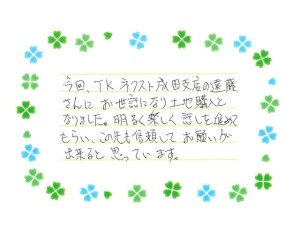 今回、TKネクスト成田支店の遠藤
さんにお世話になり土地購入と
なりました。明るく楽しく話しを進めて
もらい、この先も信頼してお願いが
出来ると思っています。